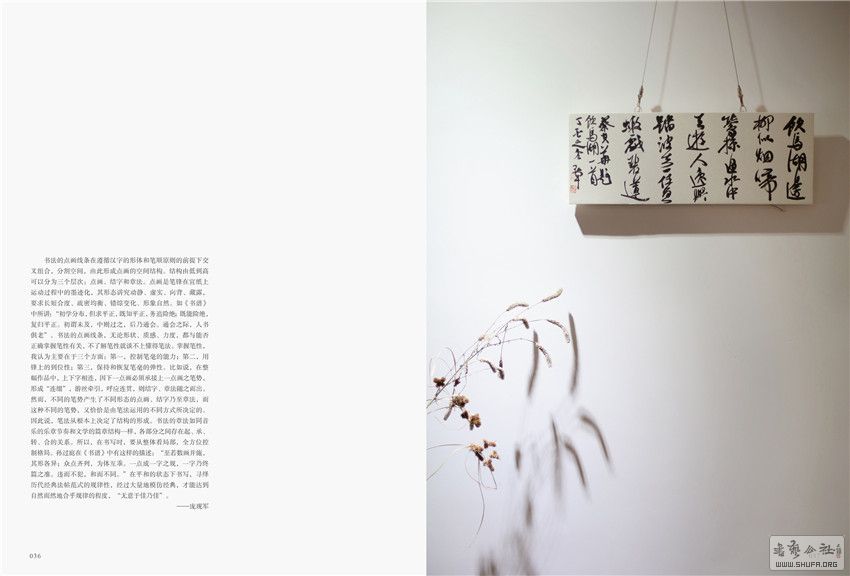 书法的点画线条在遵循汉字的形体和笔顺原则的前提下交
叉组合，分割空间，由此形成点画的空间结构。结构由低到高
可以分为三个层次：点画、结字和章法。点画是笔锋在宣纸上
运动过程中的墨迹化，其形态讲究动静、虚实、向背、藏露，
要求长短合度、疏密均衡、错综变化、形象自然。如《书谱》
中所讲：“初学分布，但求平正，既知平正，务追险绝；既能险绝，
复归平正。初谓未及，中则过之，后乃通会。通会之际，人书
俱老”。书法的点画线条，无论形状、质感、力度，都与能否
正确掌握笔性有关，不了解笔性就谈不上懂得笔法。掌握笔性，
我认为主要在于三个方面：第一，控制笔毫的能力；第二，用
锋上的到位性；第三，保持和恢复笔毫的弹性。比如说，在整
幅作品中，上下字相连，因下一点画必须承接上一点画之笔势，
形成“连绵”，游丝牵引，呼应连贯，则结字、章法随之而出。
然而，不同的笔势产生了不同形态的点画、结字乃至章法，而
这种不同的笔势，又恰恰是由笔法运用的不同方式所决定的。
因此说，笔法从根本上决定了结构的形成。书法的章法如同音
乐的乐章节奏和文学的篇章结构一样，各部分之间存在起、承、
转、合的关系。所以，在书写时，要从整体看局部，全方位控
制格局。孙过庭在《书谱》中有这样的描述：“至若数画并施，
其形各异；众点齐列，为体互乖。一点成一字之规，一字乃终
篇之准。违而不犯，和而不同。”在平和的状态下书写，寻绎
历代经典法帖范式的规律性，经过大量地模仿经典，才能达到
自然而然地合乎规律的程度，“无意于佳乃佳”。
——庞现军
036
饮马湖边
柳似烟啼
水中
游人逸兴
踏波
戏碧莲
饮马湖一首
WWW.SHUFA.ORG